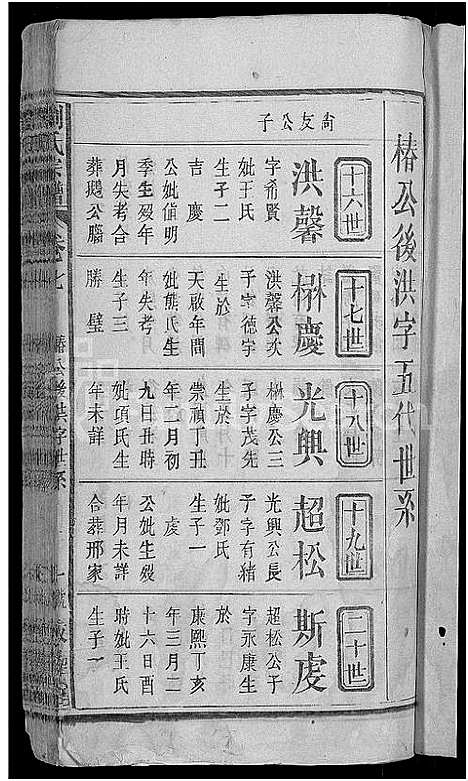 椿公後洪字五代世系
十六世
尚友公子
洪馨
字希賢
妣王氏
生子二
吉慶
公妣值明
季生殁年
月失考合
葬颺公腦
十七世
楙慶
洪馨公次
子字德宇
生於
天啟年間
妣熊氏生
年失考
生子三
勝璧
十八世
光興
楙慶公三
子字茂先
生於
崇禎丁丑
年二月初
九日丑時
妣項氏生
年未詳
十九世
超松
光興公長
子字有緒
妣鄧氏
生子一
虔
公妣生殁
年月未詳
合葬邢家
二十世
斯虔
超松公子
字永康生
於
康熙丁亥
年三月二
十六日酉
時妣王氏
生子一
劉氏宗譜
卷七
椿公後洪字世系